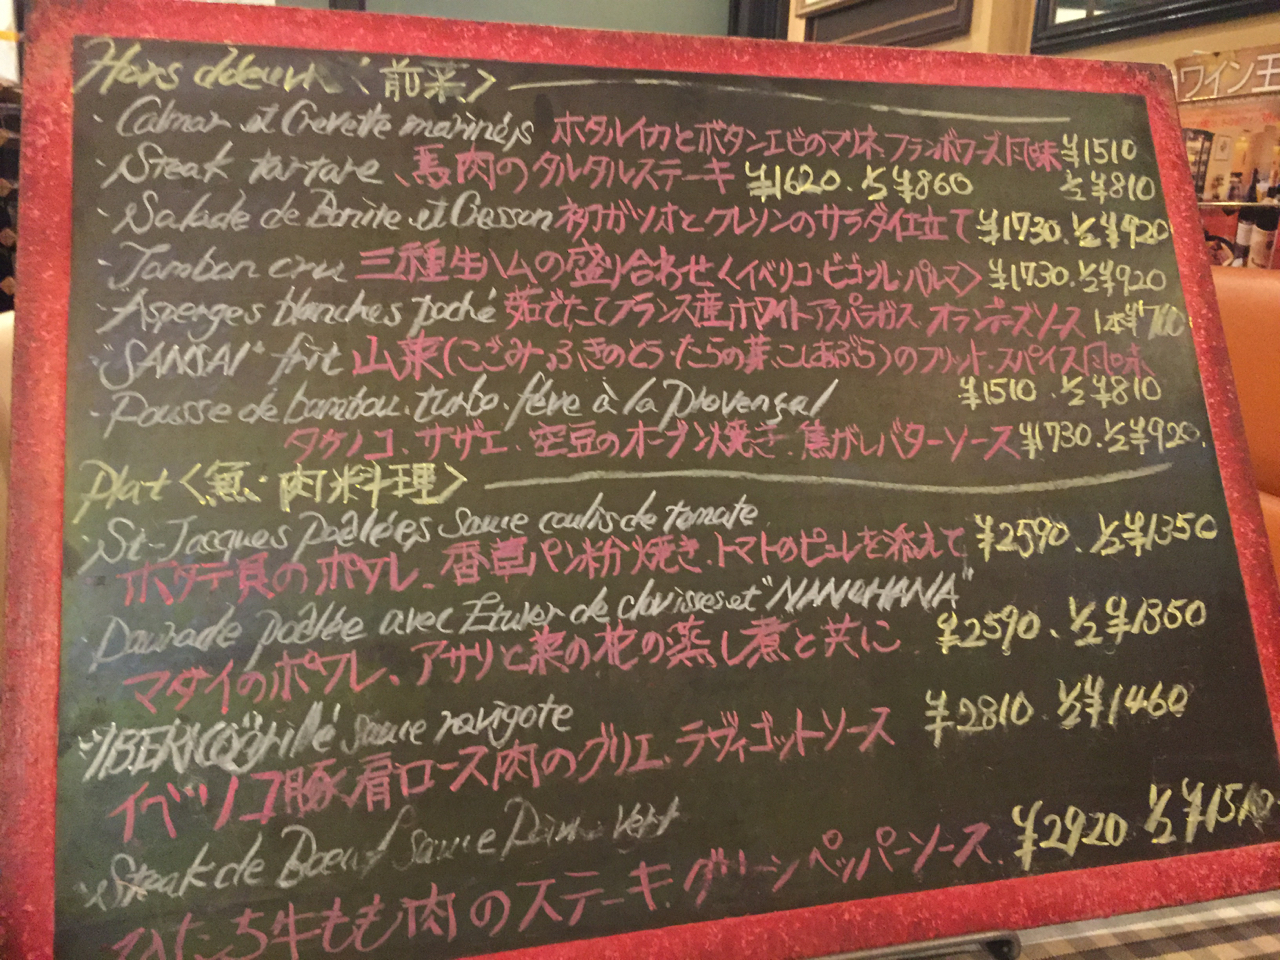 Hors d'oeuvre〈前菜〉
・Calmar et Crevette marinés ホタルイカとボタンエビのマリネ、フランボワーズ風味 ¥1510
・Steak tartare、馬肉のタルタルステーキ ¥1620. ½¥860 ½¥810
・Salade de Bonite et Cresson 初ガツオとクレソンのサラダ仕立て ¥1730. ½¥920
・Jambon cru 三種生ハムの盛り合わせ〈イベリコ・ビゴール・パルマ〉 ¥1730. ½¥920
・Asperges blanches poché 茹でたてフランス産ホワイトアスパラガス オランデーズソース 1本¥760
・"SANSAI" frit 山菜(こごみ、ふきのとう・たらの芽、こしあぶら)のフリット、スパイス風味
¥1510 . ½¥810
・Pousse de bambou. turbo. fève à la provençal
タケノコ、サザエ、空豆のオーブン焼き、焦がしバターソース ¥1730. ½¥920.
Plat〈魚・肉料理〉
・St-Jacques poêlées sauce coulis de tomate
ホタテ貝のポワレ、香草パン粉焼き、トマトのピュレを添えて ¥2590 . ½¥1350
・Daurade poêlée avec Etuver de clovisses et "NANOHANA"
マダイのポワレ、アサリと菜の花の蒸し煮と共に ¥2590 . ½¥1350
・"IBERICO" grillé sauce ravigote
イベリコ豚肩ロース肉のグリエ、ラヴィゴットソース ¥2810 . ½¥1460
・Steak de Boeuf sauce vert
ひたち牛もも肉のステーキ、グリーンペッパーソース. ¥2920 ½¥1510
ワイン王